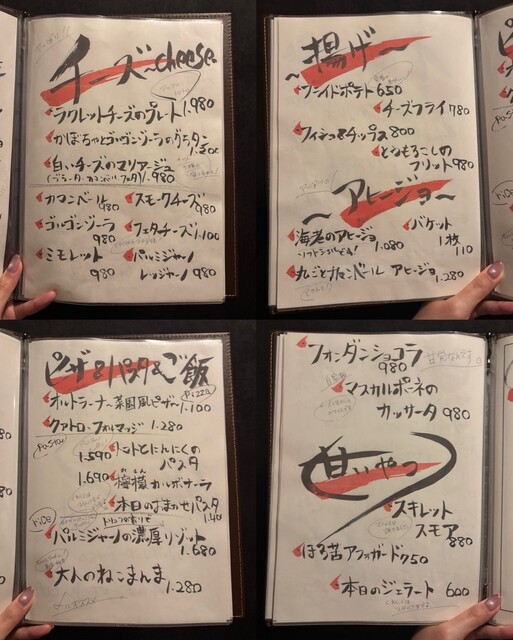 チーズ~cheese
ラクレットチーズのプレート 1.980
かぼちゃとゴルゴンゾーラのグラタン
白いチーズのマリアージュ
1.980
カマンベール 980
スモークチーズ 980
ゴルゴンゾーラ 980
フェタチーズ 1.100
ミモレット 980
パルミジャーノ
レッジャーノ 980
~揚げ~
フライドポテト 650
チーズフライ 780
フィッシュ&チップス 800
とうもろこしの
フリット 980
~アヒージョ~
海老のアヒージョ 1.080
バケット
1枚
110
丸ごとカマンベール アヒージョ 1.280
ピザ&パスタ&ご飯
Pizza
オルトラーナ~菜園風ピザ~ 1.100
クアトロ・フォルマッジ 1.280
Pasta
1.590 トマトとにんにくの
パスタ
1.690 檸檬カルボナーラ
本日のおまかせパスタ
パルミジャーノの濃厚リゾット 1.680
大人のねこまんま 1.280
フォンダンショコラ
980
マスカルポーネの
カッサータ 980
甘いやつ
スキレット
スモア
880
ほろ苦アフォガード 750
本日のジェラート 600